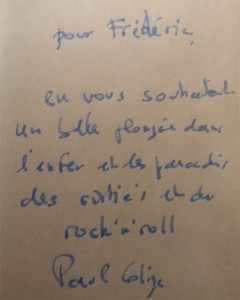 pour Frédéric,
en vous souhaitant
un belle plongée dans
l'enfer et les paradis
des et du
rock'n'roll
Paul Colize